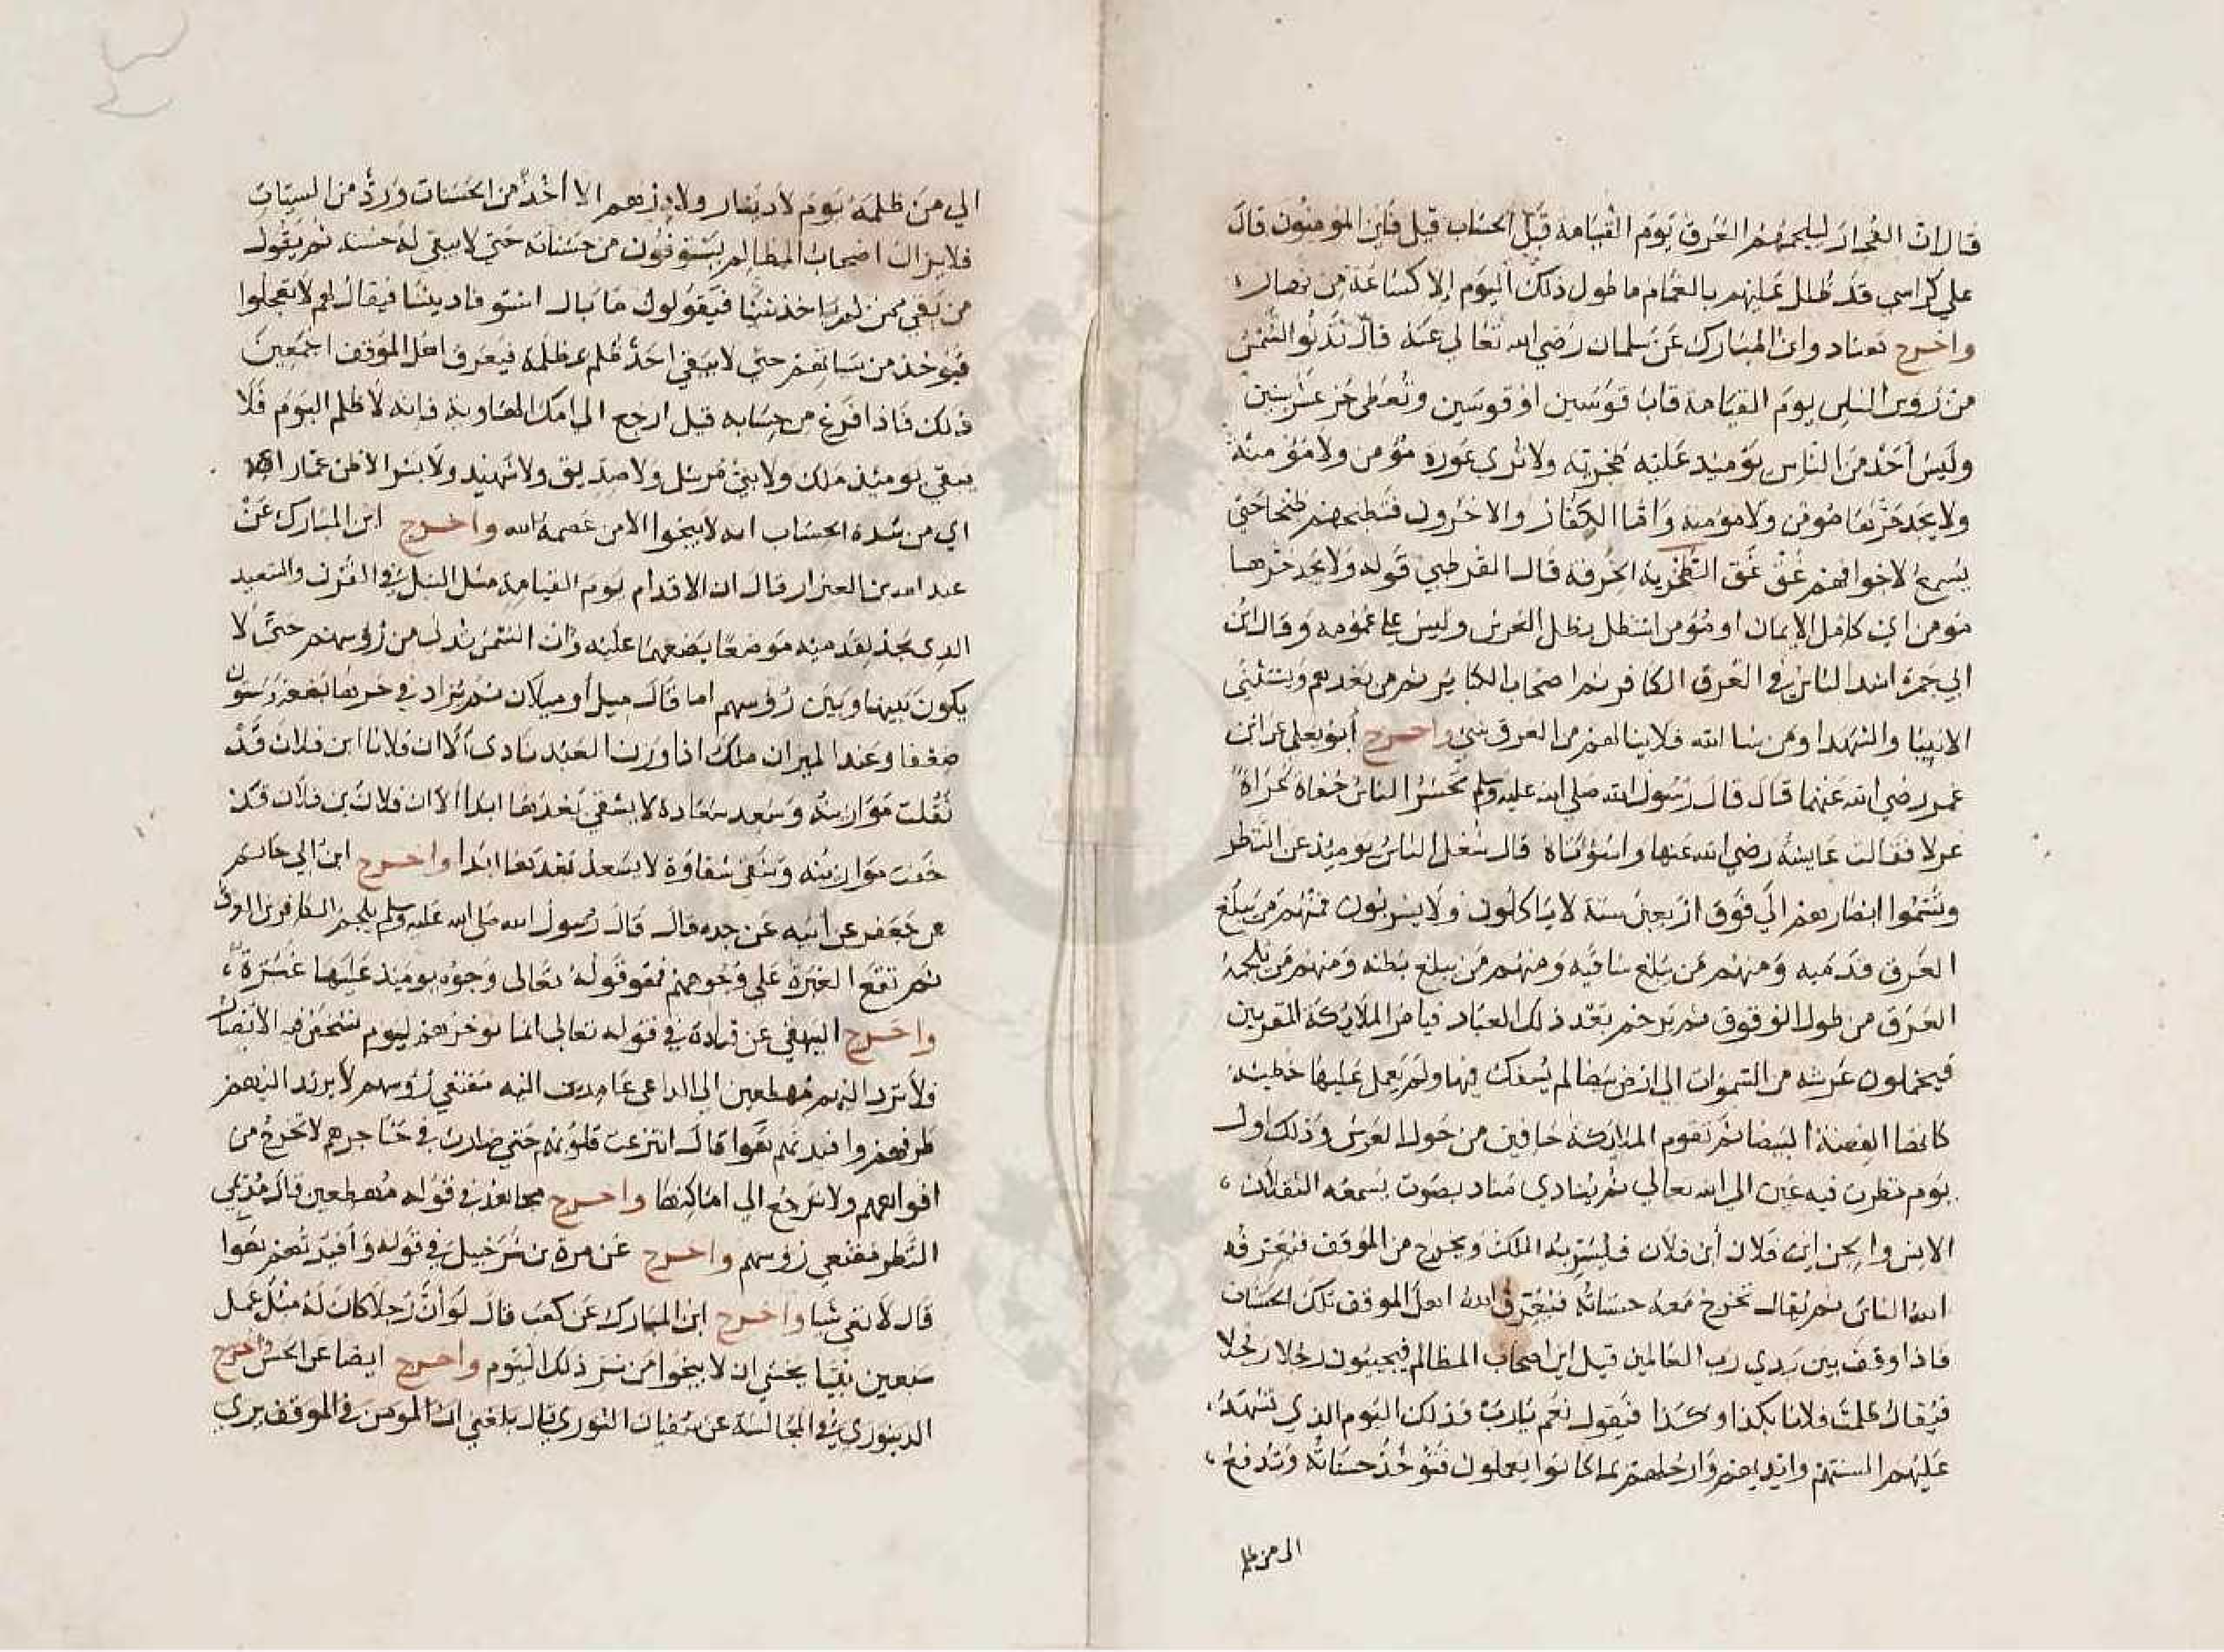 قال ان الفجار ليلجمهم العرق يوم القيامة قبل الحساب قيل فاين المومنون قال
على كراسي قد ظلل عليهم بالغمام ما طول ذلك اليوم الا كساعة من نهار،
واخرج هناد وابن المبارك عن سلمان رضي الله تعالى عنه قال تدنو الشمس
من روس الناس يوم القيامة قاب قوسين او قوسين وتعطى حر عشر سنين
وليس احد من الناس يوميذ عليه طحربة ولا ترى عورة مؤمن ولا مؤمنة
ولا يجد حرها مومن ولا مومنة واما الكفار والاخرون فتطبخهم طبخا حتى
يسمع لاجوافهم غق غق الطحربة الخرقة قال القرطبي قوله ولا يجد حرها
مومن اي كامل الايمان او مؤمن استظل بظل العرش وليس على عمومه وقال ابن
ابي جمرة اشد الناس في العرق الكافر ثم اصحاب الكباير ثم من بعدهم ويستثنى
الانبيا والشهدا ومن شا الله فلا ينالهم من العرق شي واخرج أبو يعلى عن ابن
عمر رضي الله عنهما قال قال رسول الله صلى الله عليه وسلم تحشر الناس حفاة عراة
غرلا فقالت عايشة رضي الله عنها واسؤتاه قال شغل الناس يوميذ عن النظر
وشموا ابصارهم الى فوق اربعين سنة لا ياكلون ولا يشربون فمنهم من يبلغ
العرق قدميه ومنهم من يبلغ ساقيه ومنهم من يبلغ بطنه ومنهم من يلجمه
العرق من طول الوقوف ثم يرحم بعد ذلك العباد فيامر الملايكة المقربين
فيحملون عرشه من السموات الى ارض بيضا لم يسفك فيها ولم يعمل عليها خطيئة
كانها الفضة البيضا ثم تقوم الملايكة حافين من حول العرش وذلك اول
يوم نظرت فيه عين الى الله تعالى ثم ينادي مناد بصوت يسمعه الثقلان،
الانس والجن اين فلان ابن فلان فليشريه الملك ويخرج من الموقف فيعرفه
الله الناس ثم يقال تخرج معه حسناته فيعرف الله اهل الموقف تلك الحسنات
فاذا وقف بين يدي رب العالمين قيل اين اصحاب المظالم فيجيبون رجلا رجلا
فيقال ظلمت فلانا بكذا وكذا فيقول نعم يا رب فذلك اليوم الذي تشهد،
عليهم السنتهم وايديهم وارجلهم بما كانوا يعملون فتؤخذ حسناته وتدفع،
الى من ظلم
الى من ظلمه يوم لا دينار ولا درهم الا اخذ من الحسنات ورد من السيئات
فلا يزال اصحاب المظالم يستوفون من حسناته حتى لا يبقى له حسنة ثم يقول
من بقي ممن لم ياخذ شيا فيقولون ما بال استوفا دينشا فيقال لهم لا تعجلوا
فيوخذ من سياتهم حتى لا يبقى احد ظلم بمظلمة فيعرف اهل الموقف اجمعين
ذلك فاذا فرغ من حسابه قيل ارجع الى امك الهاوية فانه لا ظلم اليوم فلا
يبقى يوميئذ ملك ولا نبي مرسل ولا صديق ولا شهيد ولا بشر الا ظن
اي من شدة الحساب انه لا ينجوا الا من عصمه الله واخرج ابن المبارك عن
عبد الله بن العيزار قال ان الاقدام يوم القيامة مثل النبل في القرن والسعيد
الذي يجد لقدميه موضعا يضعهما عليه وان الشمس تدنى من رؤسهم حتى لا
يكون بينها وبين رؤسهم اما قال ميل او ميلان ثم يزاد في حرها بضعة وستون
ضعفا وعند الميزان ملك اذا وزن العبد نادى ألا ان فلانا ابن فلان قد
ثقلت موازينه وسعد سعادة لا يشقى بعدها ابدا ألا ان فلان بن فلان قد
خفت موازينه وشقى شقاوة لا يسعد بعدها ابدا واخرج ابن ابي حاتم
عن جعفر عن ابيه عن جده قال قال رسول الله صلى الله عليه وسلم يلجم الكافر العرق
ثم تقع الغبرة على وجوههم فهو قوله تعالى وجوه يوميذ عليها غبرة،
واخرج البيهقي عن قتادة في قوله تعالى انما نوخرهم ليوم تشخص فيه الابصار
فلا ترد اليهم مهطعين الى الداعي عامدين اليه مقنعي رؤسهم لا يرتد اليهم
طرفهم وافئدتهم هوا قال انتزعت قلوبهم حتى صارت في حناجرهم لا تخرج من
افواههم ولا ترجع الى اماكنها واخرج مجاهد في قوله مهطعين قال مديمي
النظر مقنعي رؤسهم واخرج عن مرة بن شرحبيل في قوله وافيدتهم هوا
قال لا تعي شيا واخرج ابن المبارك عن كعب قال لو أن رجلا كان له مثل عمل
سبعين نبيا يخشى ان لا ينجوا من شر ذلك اليوم واخرج ايضا عن الحسن واخرج
الدينوري في المجالسة عن سفيان الثوري قال بلغني ان المومن في الموقف يرى